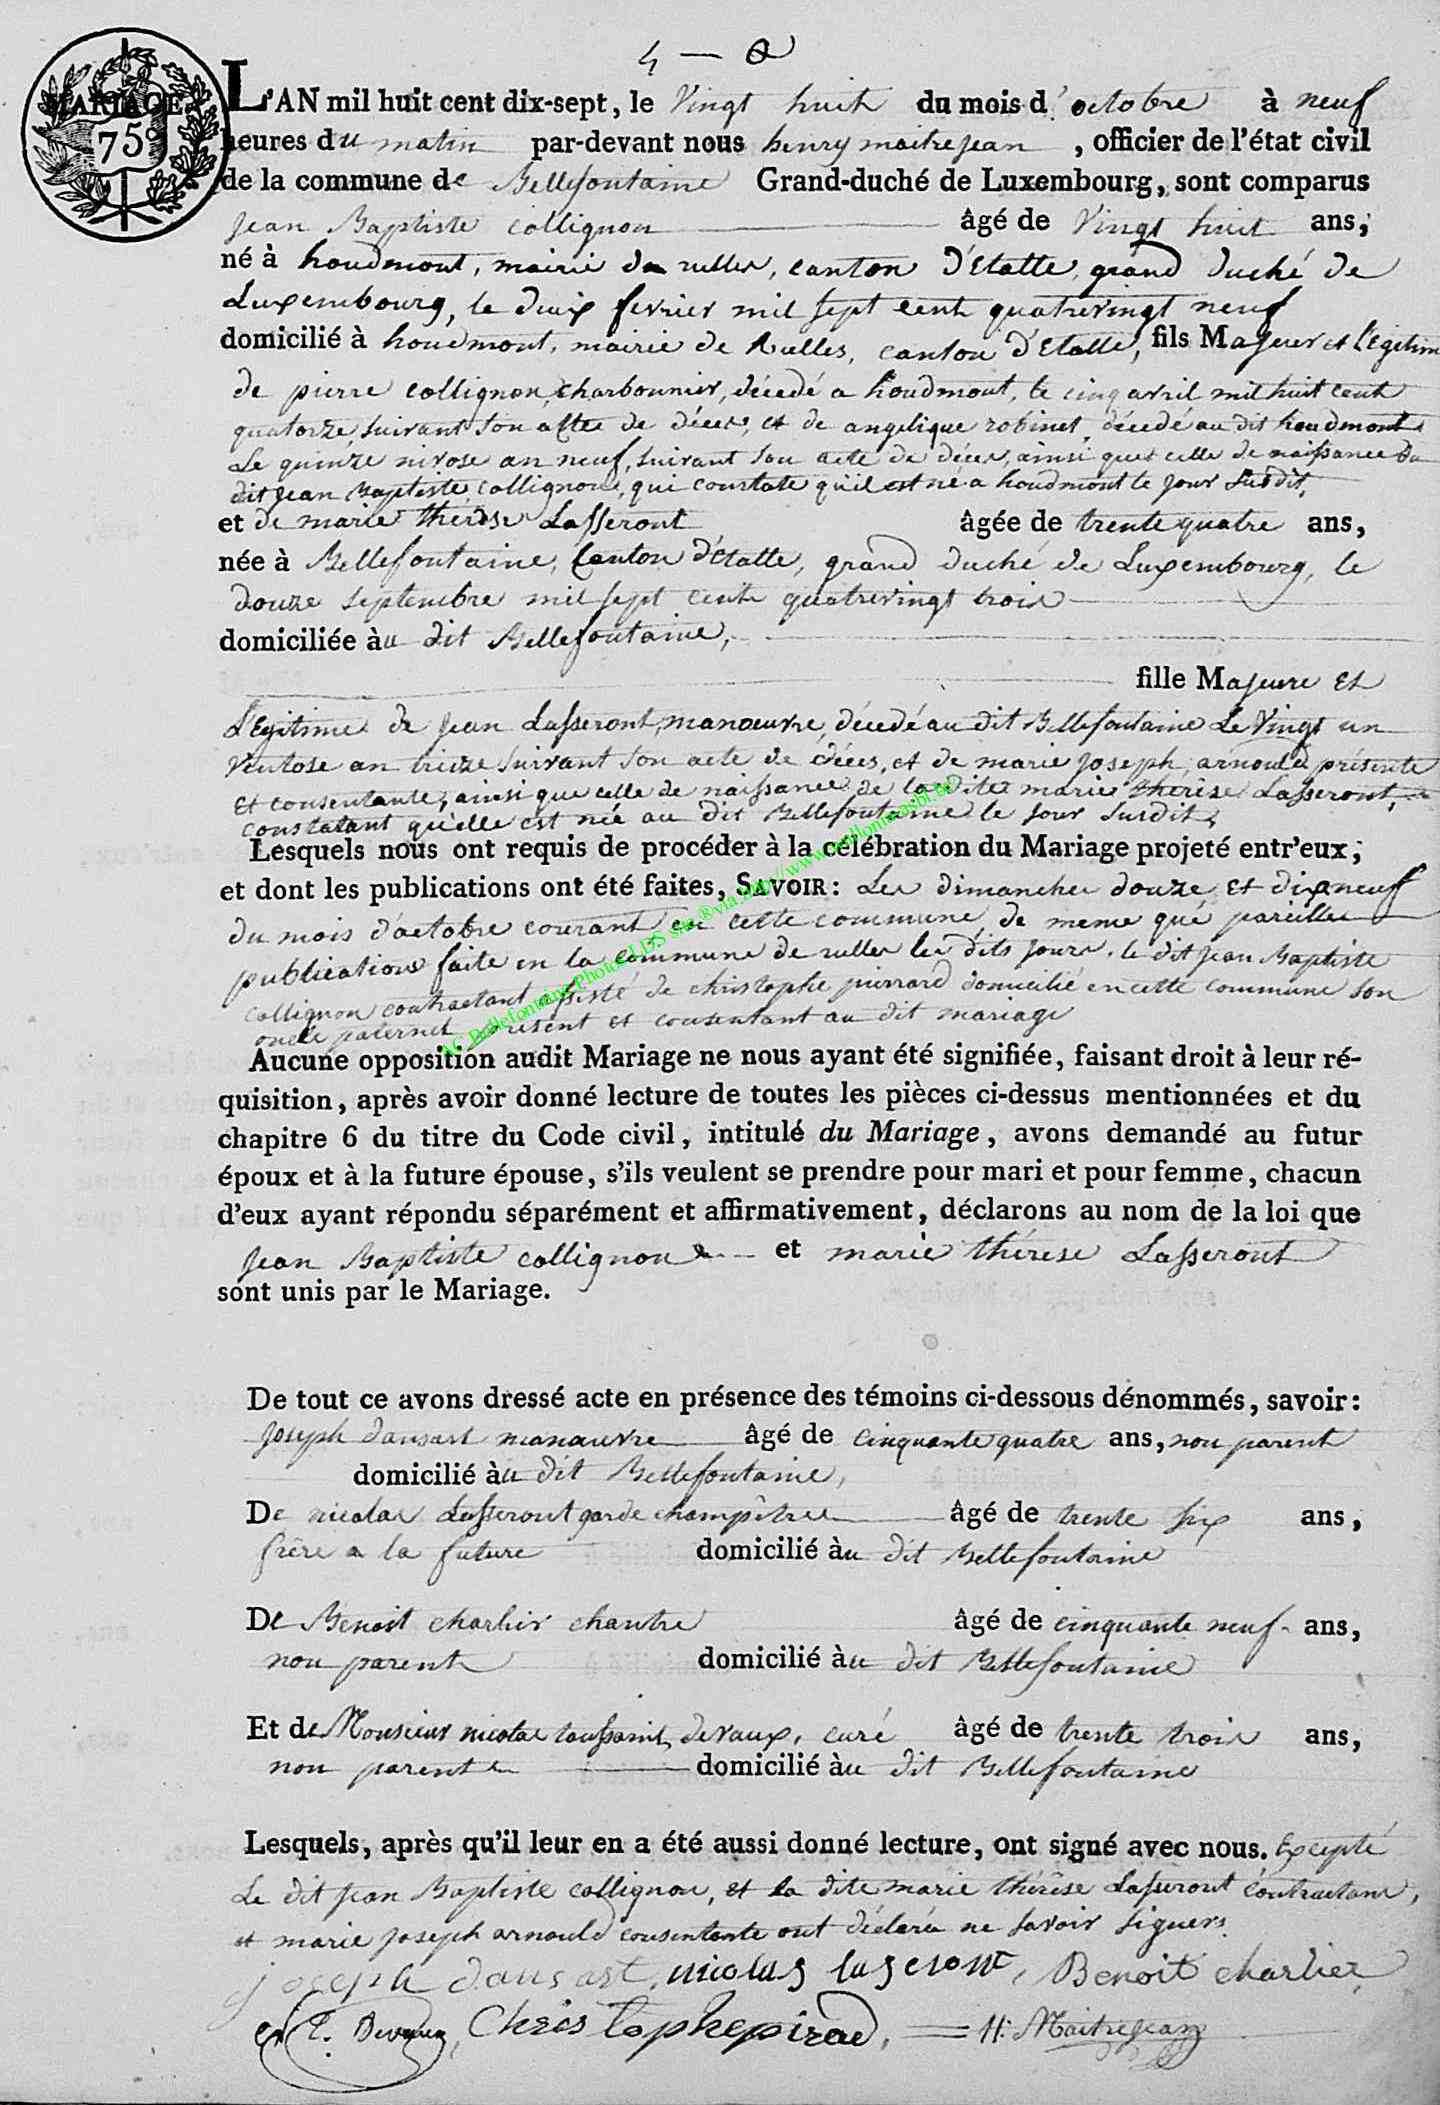 4 — 8
MARIAGE
75
L'AN mil huit cent dix-sept, le Vingt huit du mois d' octobre à neuf
heures du matin par-devant nous henry maitrejean, officier de l'état civil
de la commune de Bellefontaine Grand-duché de Luxembourg, sont comparus
Jean Baptiste collignon âgé de Vingt huit ans;
né à houdmont, mairie de rulles, canton d'Etalle, grand duché de
Luxembourg, le deux fevrier mil sept cent quatrevingt neuf
domicilié à houdmont, mairie de Rulles, canton d'Etalle, fils Majeur et Legitime
de pierre collignon, charbonnier, décedé a houdmont, le cinq avril mil huit cent
quatorze suivant son actte de décès, et de angelique robinet, décedé au dit houdmont
Le quinze nivose an neuf, suivant son acte de décès, ainsi que celle de naissance du
dit Jean Baptiste collignon, qui constate qu'il est né a houdmont le jour susdit,
et de marie therese Lasseront âgée de trente quatre ans,
née à Bellefontaine, Canton d'Etalle, grand duché de Luxembourg, le
douze septembre mil sept cent quatrevingt trois
domiciliée àu dit Bellefontaine,
fille Majeure et
Légitime de Jean Lasseront, manoeuvre, décedé au dit Bellefontaine Le Vingt un
Ventose an treize suivant son acte de décès, et de marie joseph arnould présente
et consentante, ainsi que celle de naissance de la dite marie thérèse Lasseront,
constatant qu'elle est née au dit Bellefontaine le jour susdit,
Lesquels nous ont requis de procéder à la célébration du Mariage projeté entr'eux;
et dont les publications ont été faites, SAVOIR: Les dimanches douze et dixneuf
du mois d'octobre courant en cette commune, de meme que pareilles
publications faite en la commune de rulles les dits jours. le dit Jean Baptiste
collignon contractant assisté de christophe pierrard domicilié en cette commune son
oncle paternel présent et consentant au dit mariage
AC Bellefontaine Photos LDS sur ®via http://www.
Aucune opposition audit Mariage ne nous ayant été signifiée, faisant droit à leur ré-
quisition, après avoir donné lecture de toutes les pièces ci-dessus mentionnées et du
chapitre 6 du titre du Code civil, intitulé du Mariage, avons demandé au futur
époux et à la future épouse, s'ils veulent se prendre pour mari et pour femme, chacun
d'eux ayant répondu séparément et affirmativement, déclarons au nom de la loi que
Jean Baptiste collignon et marie thérèse Lasseront
sont unis par le Mariage.
De tout ce avons dressé acte en présence des témoins ci-dessous dénommés, savoir:
Joseph dansart manœuvre âgé de cinquante quatre ans, non parent
domicilié àu dit Bellefontaine,
De nicolas Lasseront garde champêtre âgé de trente six ans,
frère a la future domicilié àu dit Bellefontaine
De Benoit charlier chantre âgé de cinquante neuf ans,
non parent domicilié àu dit Bellefontaine
Et de Monsieur nicolas toussaint devaux, curé âgé de trente trois ans,
non parent domicilié àu dit Bellefontaine
Lesquels, après qu'il leur en a été aussi donné lecture, ont signé avec nous. Excepté
Le dit Jean Baptiste collignon, et la dite marie thérèse Lasseront contractans,
et marie joseph arnould consentante ont déclaré ne savoir signer.
joseph dansart, nicolas laseront, Benoit charlier
Devaux, Christophe pirard, H: Maitrejean